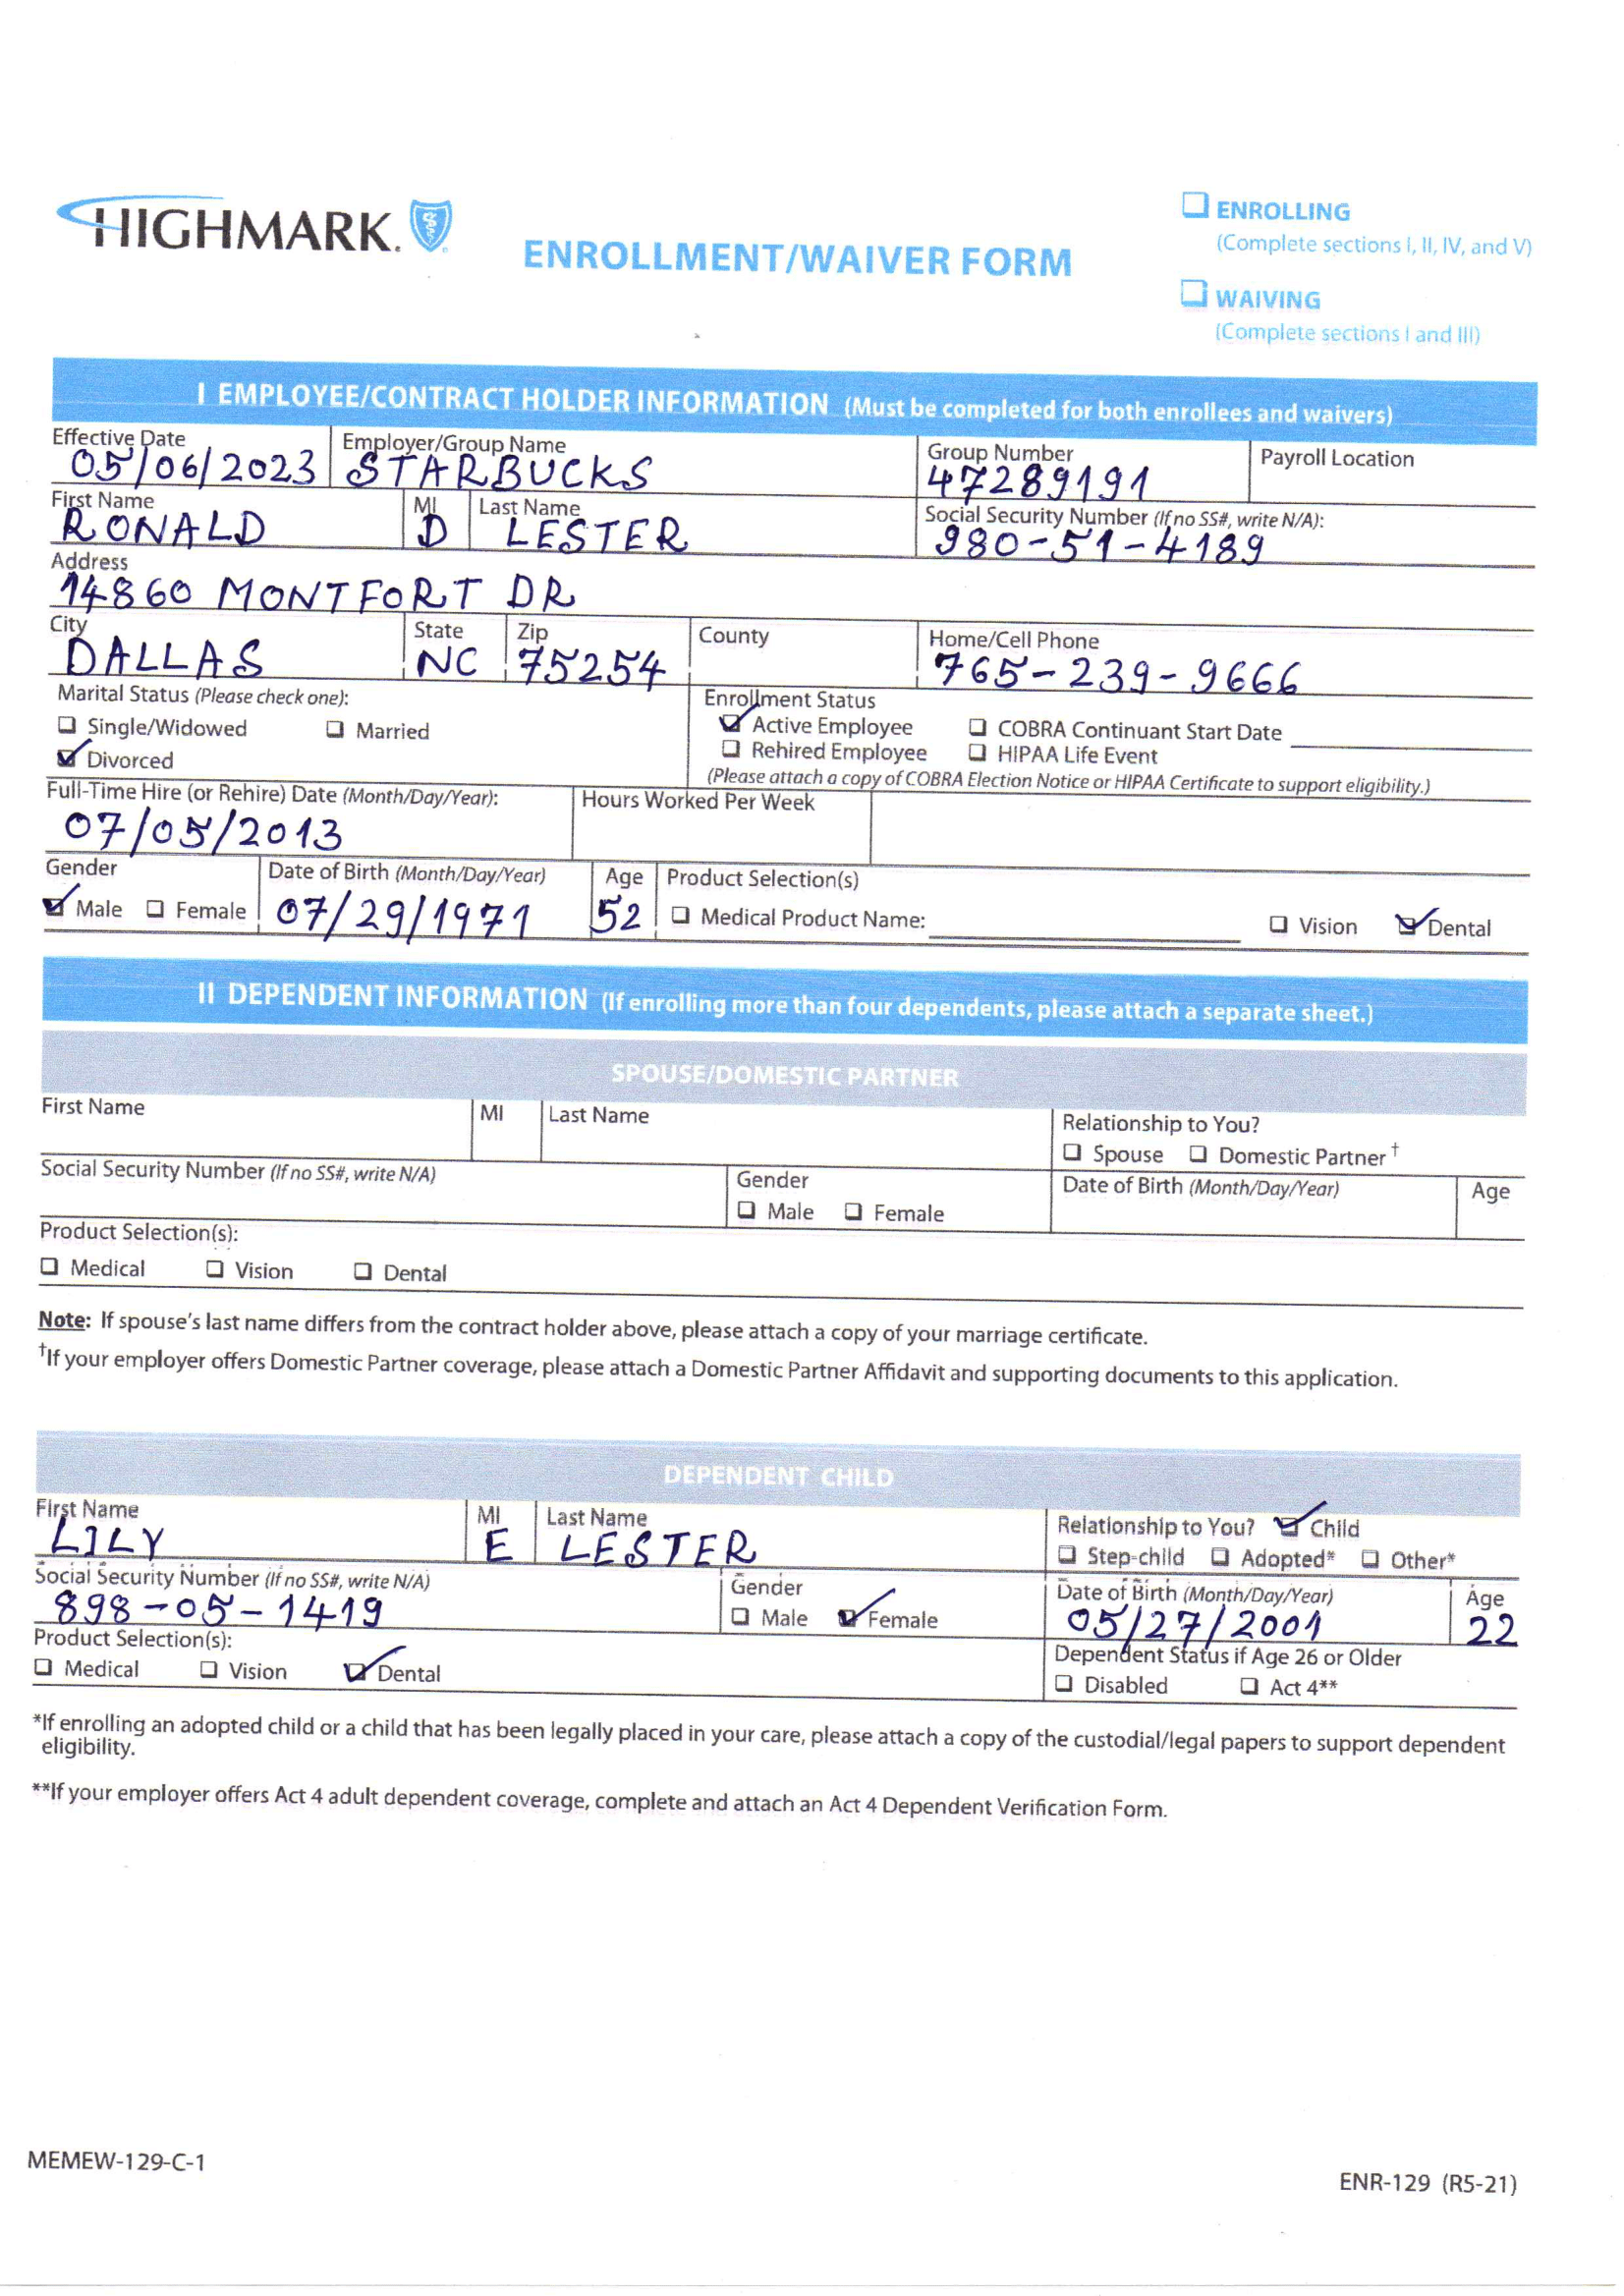 HIGHMARK.
ENROLLMENT/WAIVER FORM
ENROLLING
(Complete sections I, II, IV, and V)
WAIVING
(Complete sections I and III)
I EMPLOYEE/CONTRACT HOLDER INFORMATION (Must be completed for both enrollees and waivers)
Effective Date Employer/Group Name Group Number Payroll Location
05/06/2023 STARBUCKS 47289191
First Name MI Last Name Social Security Number (If no SS#, write N/A):
RONALD D LESTER 980-51-4189
Address
14860 MONTFORT DR
City State Zip County Home/Cell Phone
DALLAS NC 75254 765-239-9666
Marital Status (Please check one): Enrollment Status
Single/Widowed Married Active Employee COBRA Continuant Start Date
Divorced Rehired Employee HIPAA Life Event
(Please attach a copy of COBRA Election Notice or HIPAA Certificate to support eligibility.)
Full-Time Hire (or Rehire) Date (Month/Day/Year): Hours Worked Per Week
07/05/2013
Gender Date of Birth (Month/Day/Year) Age Product Selection(s)
Male Female 07/29/1971 52 Medical Product Name: Vision Dental
II DEPENDENT INFORMATION (If enrolling more than four dependents, please attach a separate sheet.)
SPOUSE/DOMESTIC PARTNER
First Name MI Last Name Relationship to You?
Spouse Domestic Partner†
Social Security Number (If no SS#, write N/A) Gender Date of Birth (Month/Day/Year) Age
Male Female
Product Selection(s):
Medical Vision Dental
Note: If spouse's last name differs from the contract holder above, please attach a copy of your marriage certificate.
†If your employer offers Domestic Partner coverage, please attach a Domestic Partner Affidavit and supporting documents to this application.
DEPENDENT CHILD
First Name MI Last Name Relationship to You? Child
LILY E LESTER Step-child Adopted* Other*
Social Security Number (If no SS#, write N/A) Gender Date of Birth (Month/Day/Year) Age
898-05-1419 Male Female 05/27/2001 22
Product Selection(s): Dependent Status if Age 26 or Older
Medical Vision Dental Disabled Act 4**
*If enrolling an adopted child or a child that has been legally placed in your care, please attach a copy of the custodial/legal papers to support dependent
eligibility.
**If your employer offers Act 4 adult dependent coverage, complete and attach an Act 4 Dependent Verification Form.
MEMEW-129-C-1
ENR-129 (R5-21)